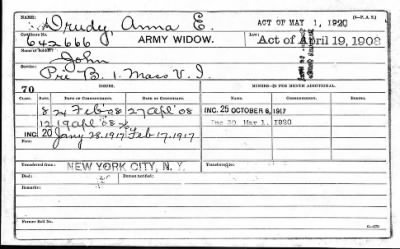 (3-P.A.S.)
Name: Drudy, Anna E. ACT OF MAY 1, 1920
Certificate No. 642666 ARMY WIDOW. Law: Act of April 19, 1908
Name of Soldier: John
Service: Pvt B. 1. Mass V. I.
70
ISSUE. MINORS—$2 PER MONTH ADDITIONAL.
CLASS. RATE. DATE OF COMMENCEMENT. DATE OF CERTIFICATE. NAME. COMMENCEMENT. ENDING.
8 24 Feb-08 27 apl '08 INC. 25 OCTOBER 6, 1917
12 19 apl '08 Inc 30 May 1, 1920
INC. 20 Jany 28, 1917 Feb 17, 1917
Transferred from: NEW YORK CITY, N. Y. Transferred to:
Died: Bureau notified:
Remarks:
Former Roll No.